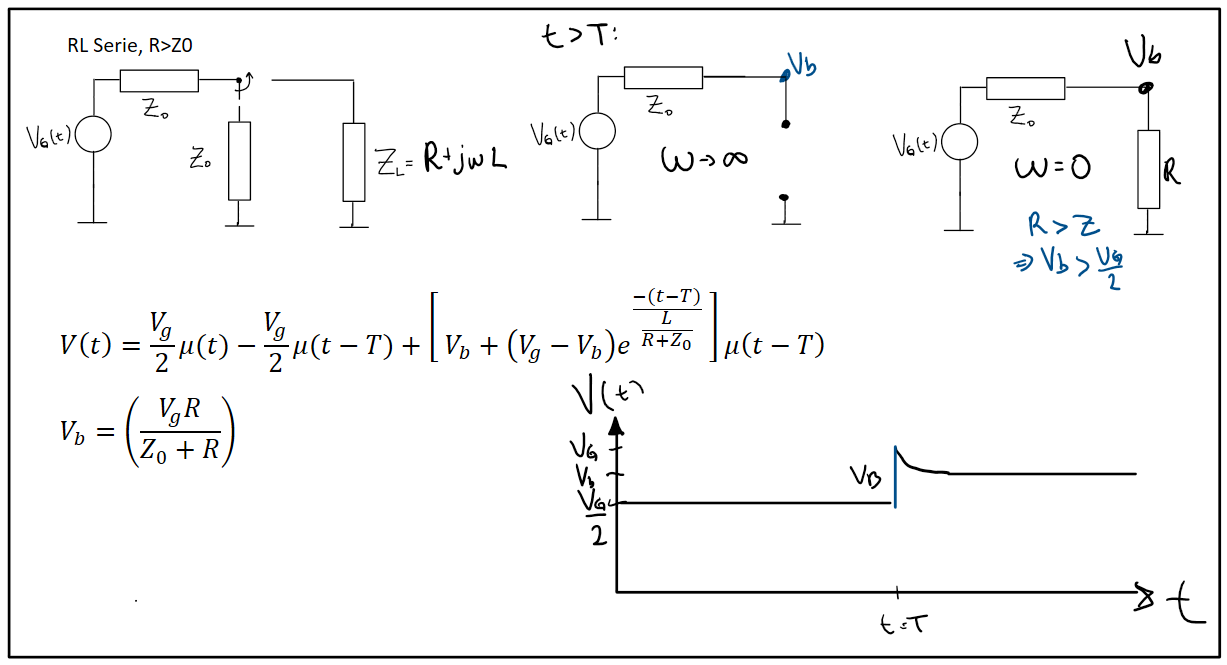 RL Serie, R>Z0
Z₀
V_G(t)
Z₀
Z_L = R+jωL
t>T:
V_b
Z₀
V_G(t)
ω→∞
V_b
Z₀
V_G(t)
ω=0
R
R>Z
⇒ V_b > V_G/2
V(t) = V_g/2 μ(t) − V_g/2 μ(t − T) + [V_b + (V_g − V_b)e^(−(t−T)/(L/(R+Z₀)))] μ(t − T)
V_b = (V_g R/(Z₀ + R))
V(t)
V_G
V_b
V_G/2
V_B
t=T
t